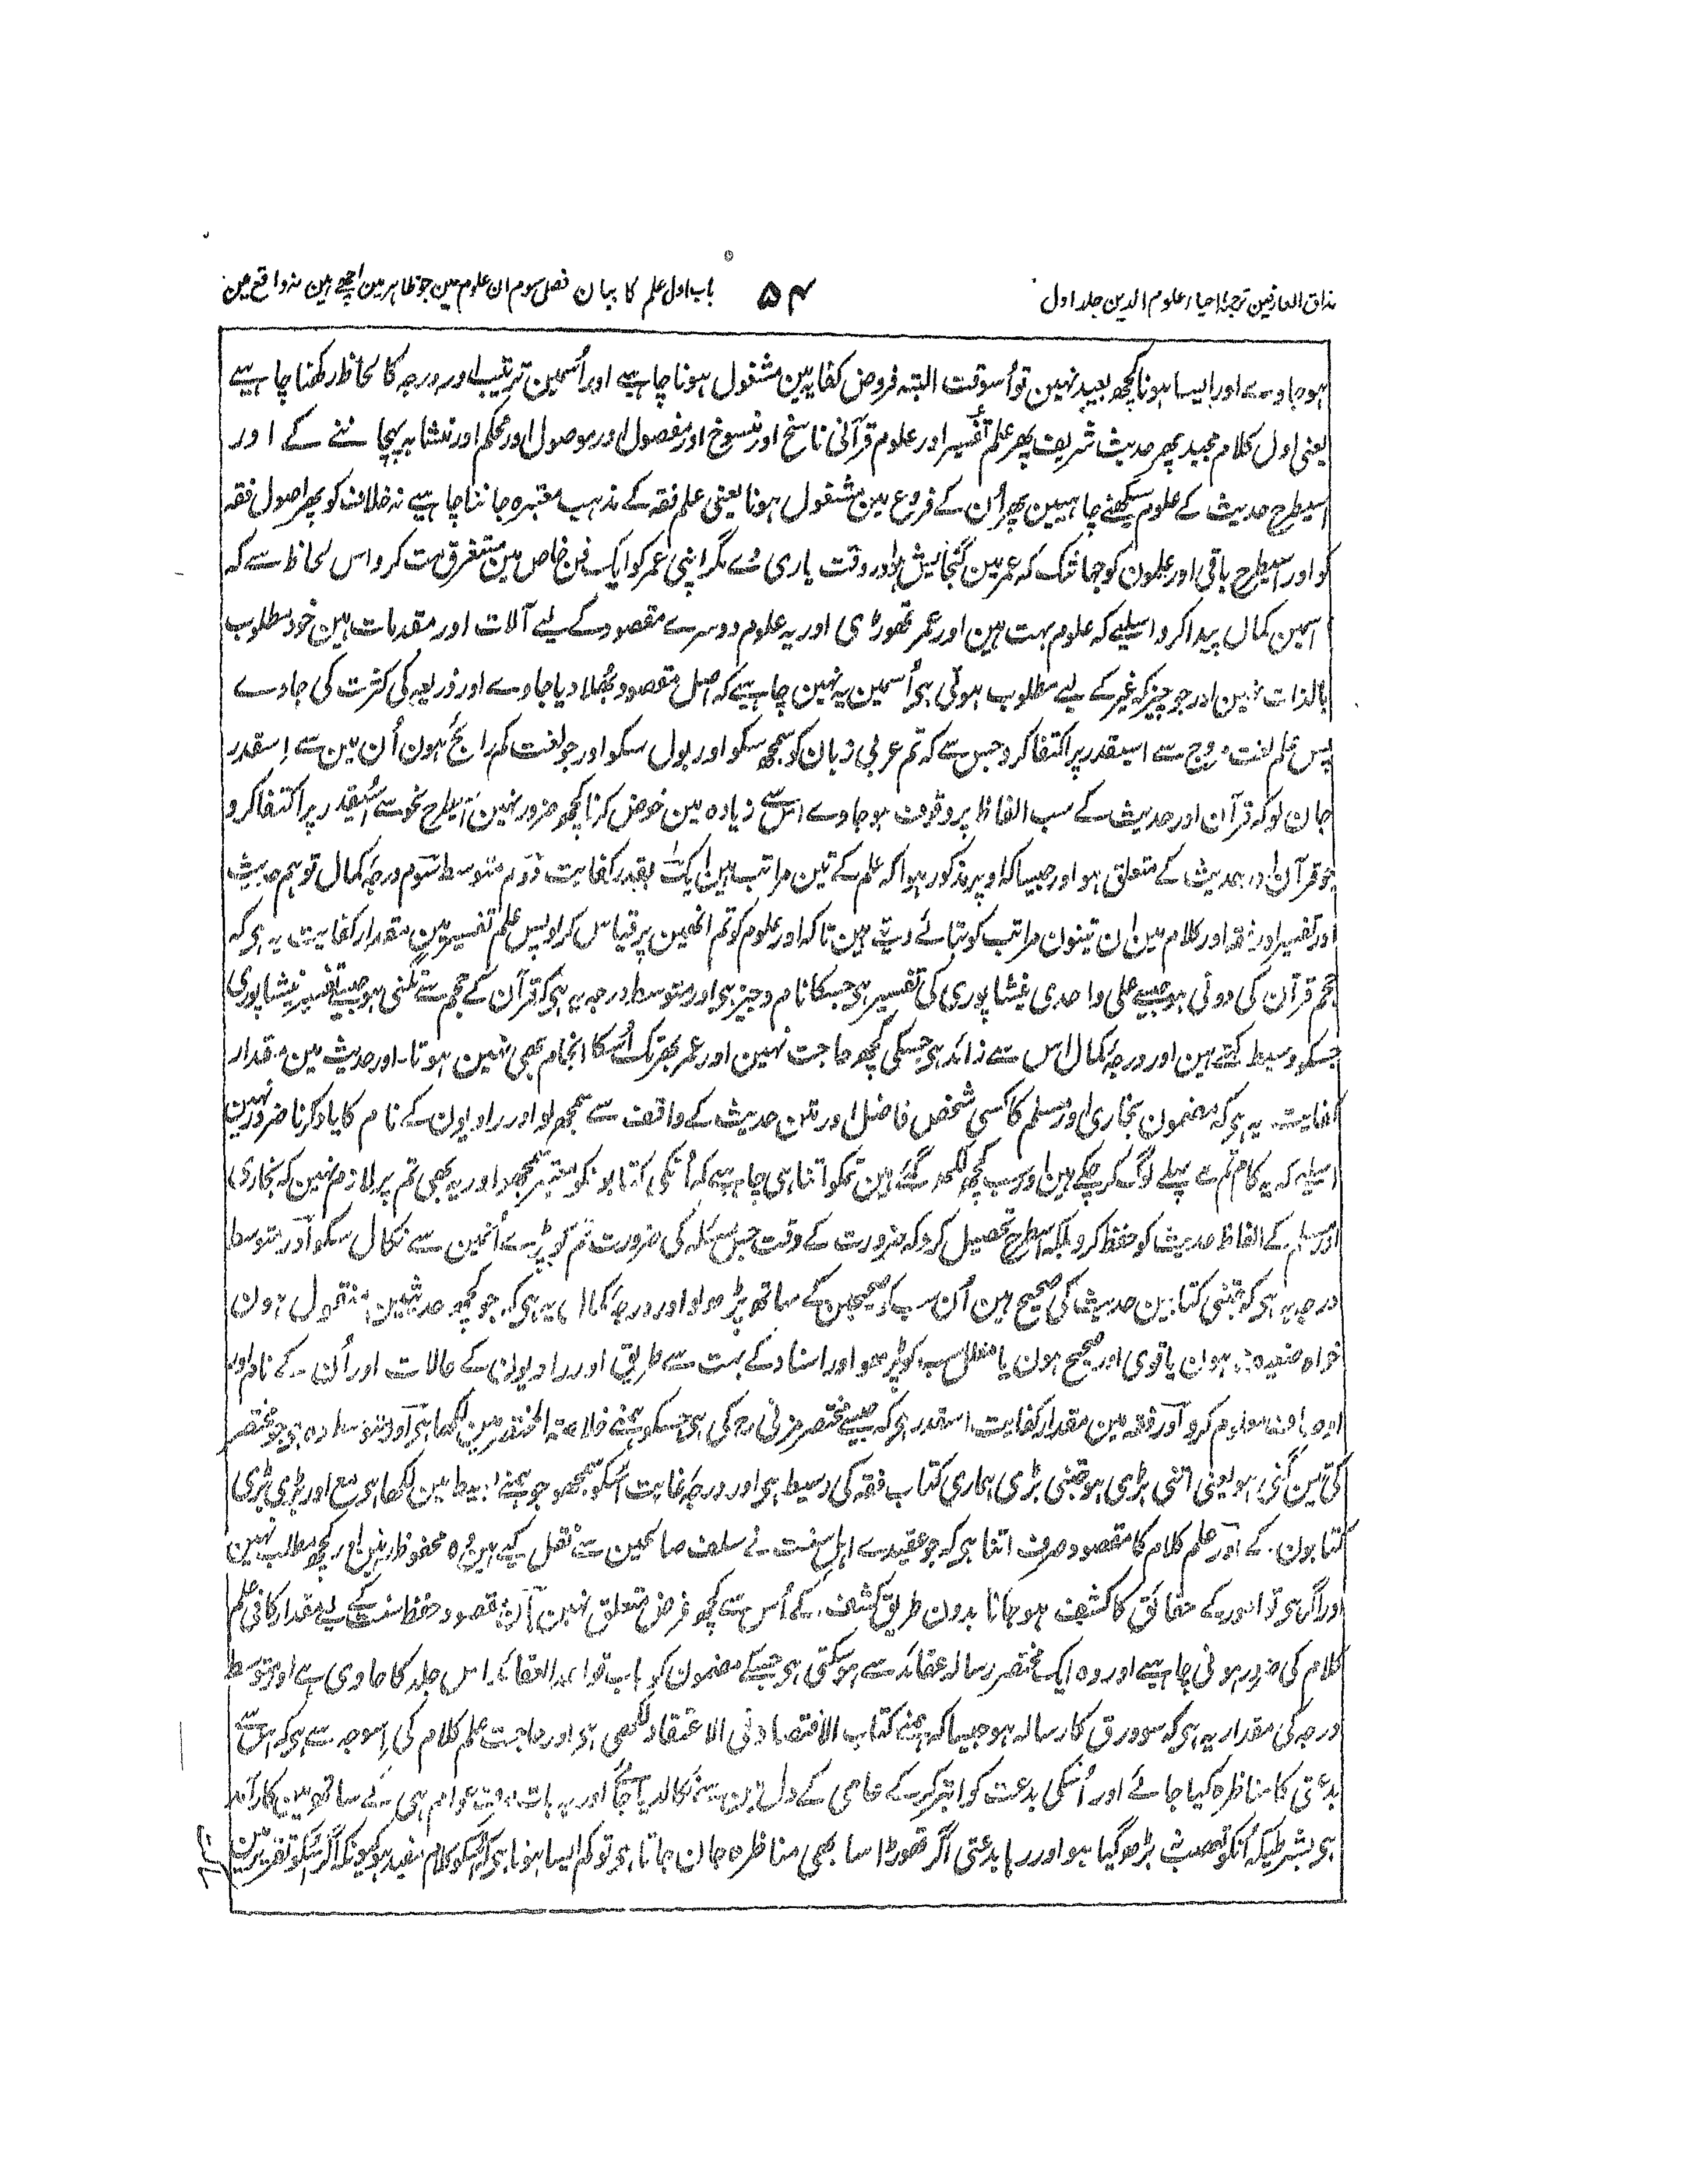 مذاق العارفین ترجمۂ احیاء علوم الدین جلد اول
۵۴
باب اول علم کا بیان فصل سوم ان علوم مین جو ظاہر مین اچھے ہین نہ واقع مین
ہو جاوے اور ایسا ہونا کچھ بعید نہین تو اُسوقت البتہ فروض کفایہ مین مشغول ہونا چاہیے اور اُسمین ترتیب اور درجہ کا لحاظ رکھنا چاہیے
یعنی اول کلام مجید پھر حدیث شریف پھر علم تفسیر اور علوم قرآنی ناسخ اور منسوخ اور مفصول اور موصول اور محکم اور متشابہ پہچاننے کے اور
اسیطرح حدیث کے علوم سیکھنے چاہیین پھر اُن کے فروع مین مشغول ہونا یعنی علم فقہ کے مذہب معتبرہ جاننا چاہیے نہ خلاف کو پھر اصول فقہ
کو اور اسیطرح باقی اور علمون کو جہانتک کہ عمر مین گنجایش ہو اور وقت یاری دے مگر اپنی عمر کو ایک فن خاص مین مستغرق مت کرو اس لحاظ سے کہ
اسمین کمال پیدا کرو اسلیے کہ علوم بہت ہین اور عمر تھوڑی اور یہ علوم دوسرے مقصود کے لیے آلات اور مقدمات ہین خود مطلوب
بالذات نہین اور جو چیز کہ غیر کے لیے مطلوب ہوتی ہی اُسمین یہ نہین چاہیے کہ اصل مقصود بھلا دیا جاوے اور ذریعہ کی کثرت کی جاوے
پس علم لغت مروج سے اسیقدر پر اکتفا کرو جس سے کہ تم عربی زبان کو سمجھ سکو اور بول سکو اور جو لغت کم رائج ہون اُن مین سے اِسقدر
جان لو کہ قرآن اور حدیث کے سب الفاظ پر وقوف ہو جاوے اس سے زیادہ مین خوض کرنا کچھ ضرور نہین اسیطرح نحو سے اُسیقدر پر اکتفا کرو
جو قرآن اور حدیث کے متعلق ہو اور جیسا کہ اوپر مذکور ہوا کہ علم کے تین مراتب ہین ایک بقدر کفایت دوم متوسط سوم درجہ کمال تو ہم حدیث
اور تفسیر اور فقہ اور کلام مین ان تینون مراتب کو بتائے دیتے ہین تاکہ اور علوم کو تم انھین پر قیاس کر لو پس علم تفسیر مین مقدار کفایت یہ ہی کہ
حجم قرآن کی دوئی ہو جیسے علی واحدی نیشاپوری کی تفسیر ہی جسکا نام وجیز ہی اور متوسط درجہ یہ ہی کہ قرآن کے حجم سے تگنی ہو جیسے تفسیر نیشاپوری
جسکو وسیط کہتے ہین اور درجہ کمال اس سے زائد ہی جسکی کچھ حاجت نہین اور عمر بھر تک اُسکا انجام بھی نہین ہوتا۔ اور حدیث مین مقدار
کفایت یہ ہی کہ مضمون بخاری اور مسلم کا کسی شخص فاضل اور متن حدیث کے واقف سے سمجھ لو اور راویون کے نام کا یاد کرنا ضرور نہین
اسلیے کہ یہ کام تم سے پہلے لوگ کر چکے ہین اور سب کچھ لکھ گئے ہین تمکو اتنا ہی چاہیے کہ اُنکی کتابونکو معتبر سمجھو اور یہ بھی تم پر لازم نہین کہ بخاری
اور مسلم کے الفاظ حدیث کو حفظ کرو بلکہ اسطرح تحصیل کرو کہ ضرورت کے وقت جس مسئلہ کی ضرورت تم کو پڑے اُنمین سے نکال سکو اور متوسط
درجہ یہ ہی کہ جتنی کتابین حدیث کی صحیح ہین اُن سب کو صحیحین کے ساتھ پڑھ لو اور درجہ کمال یہ ہی کہ جو کچھ حدیثین منقول ہون
خواہ ضعیف ہون یا قوی اور صحیح ہون یا معلل سب کو پڑھو اور اسناد کے بہت سے طریق اور راویون کے حالات اور اُن کے نام اور
اوصاف معلوم کرو اور فقہ مین مقدار کفایت اسقدر ہی کہ جیسے مختصر مزنی رح کی ہی جسکو ہمنے خلاصۃ المختصر مین لکھا ہی اور متوسط وہ ہی جو مختصر
کی تین گنی ہو یعنی اتنی بڑی ہو جتنی بڑی ہماری کتاب فقہ کی وسیط ہی اور درجہ غایت اُسکو سمجھو جو ہمنے بسیط مین لکھا ہی مع اور بڑی بڑی
کتابون کے اور علم کلام کا مقصود صرف اتنا ہی کہ جو عقیدے اہل سنت نے سلف صالحین سے نقل کیے ہین وہ محفوظ رہین اور کچھ مطلب نہین
اور اگر ہی تو امور کے حقائق کا کشف ہو جانا بدون طریق کشف کے اُس سے کچھ غرض متعلق نہین مقصود حفظ سنت کے لیے مقدار کافی علم
کلام کی ضرور ہونی چاہیے اور وہ ایک مختصر رسالہ عقائد سے ہو سکتی ہی جسکے مضمون کو باب قواعد العقائد اس جلد کا حاوی ہے اور متوسط
درجہ کی مقدار یہ ہی کہ سو ورق کا رسالہ ہو جیسا کہ ہمنے کتاب الاقتصاد فی الاعتقاد لکھی ہی اور حاجت علم کلام کی اِسوجہ سے ہی کہ اس سے
بدعتی کا مناظرہ کیا جائے اور اُسکی بدعت کو ابتر کرکے عامی کے دل مین سے نکالدیا جائے اور یہ بات صرف عوام ہی کے ساتھ مین کارآمد
ہی بشرطیکہ اُنکو تعصب نہ بڑھ گیا ہو اور رہا بدعتی اگر تھوڑا سا بھی مناظرہ جان جاتا ہی تو کم ایسا ہوتا ہی کہ اُسکو کلام مفید ہو کیونکہ اگر اُسکو تقریر مین